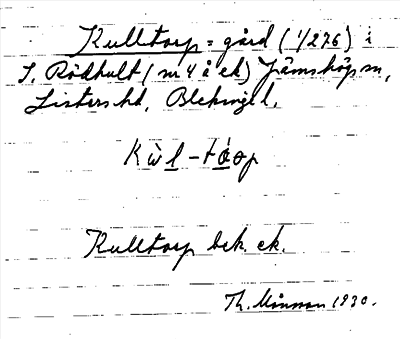 Kulltorp = gård (1/276) i
S. Rödhult (nr 4 å ek) Jämshögs sn,
Listers hd, Blekinge l.
Kùl-tóop
Kulltorp bek. ek.
Th. Månsson 1930.